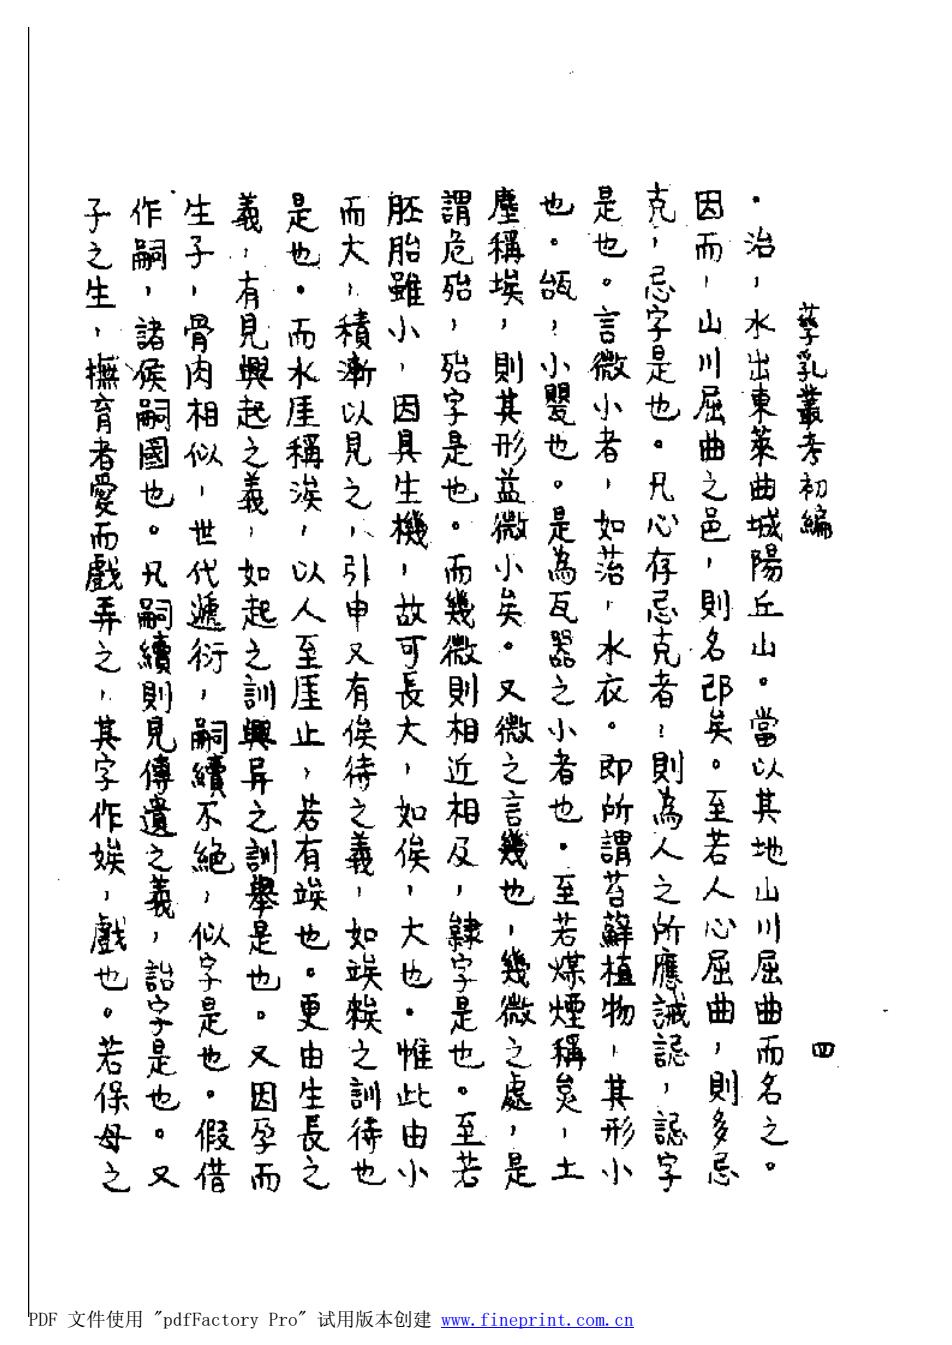 孳乳叢考初編 四
·治，水出東萊曲城陽丘山。當以其地山川屈曲而名之。
因而，山川屈曲之邑，則名邔矣。至若人心屈曲，則多忌
克，忌字是也。凡心存忌克者，則為人之所應誡誋，誋字
是也。言微小者，如菭，水衣。即所謂苔蘚植物，其形小
也。瓵，小甖也。是為瓦器之小者也。至若煤煙稱炱，土
塵稱埃，則其形益微小矣。又微之言幾也，幾微之處，是
謂危殆，殆字是也。而幾微則相近相及，隸字是也。至若
胚胎雖小，因具生機，故可長大，如俟，大也。惟此由小
而大，積漸以見之，引申又有俟待之義，如竢䇃之訓待也
是也。而水厓稱涘，以人至厓止，若有竢也。更由生長之
義，有見興起之義，如起之訓興异之訓舉是也。又因孕而
生子，骨肉相似，世代遞衍，嗣續不絕，似字是也。假借
作嗣，諸侯嗣國也。凡嗣續則見傳遺之義，詒字是也。又
子之生，撫育者愛而戲弄之，其字作娭，戲也。若保母之
PDF 文件使用 "pdfFactory Pro" 试用版本创建 www.fineprint.com.cn